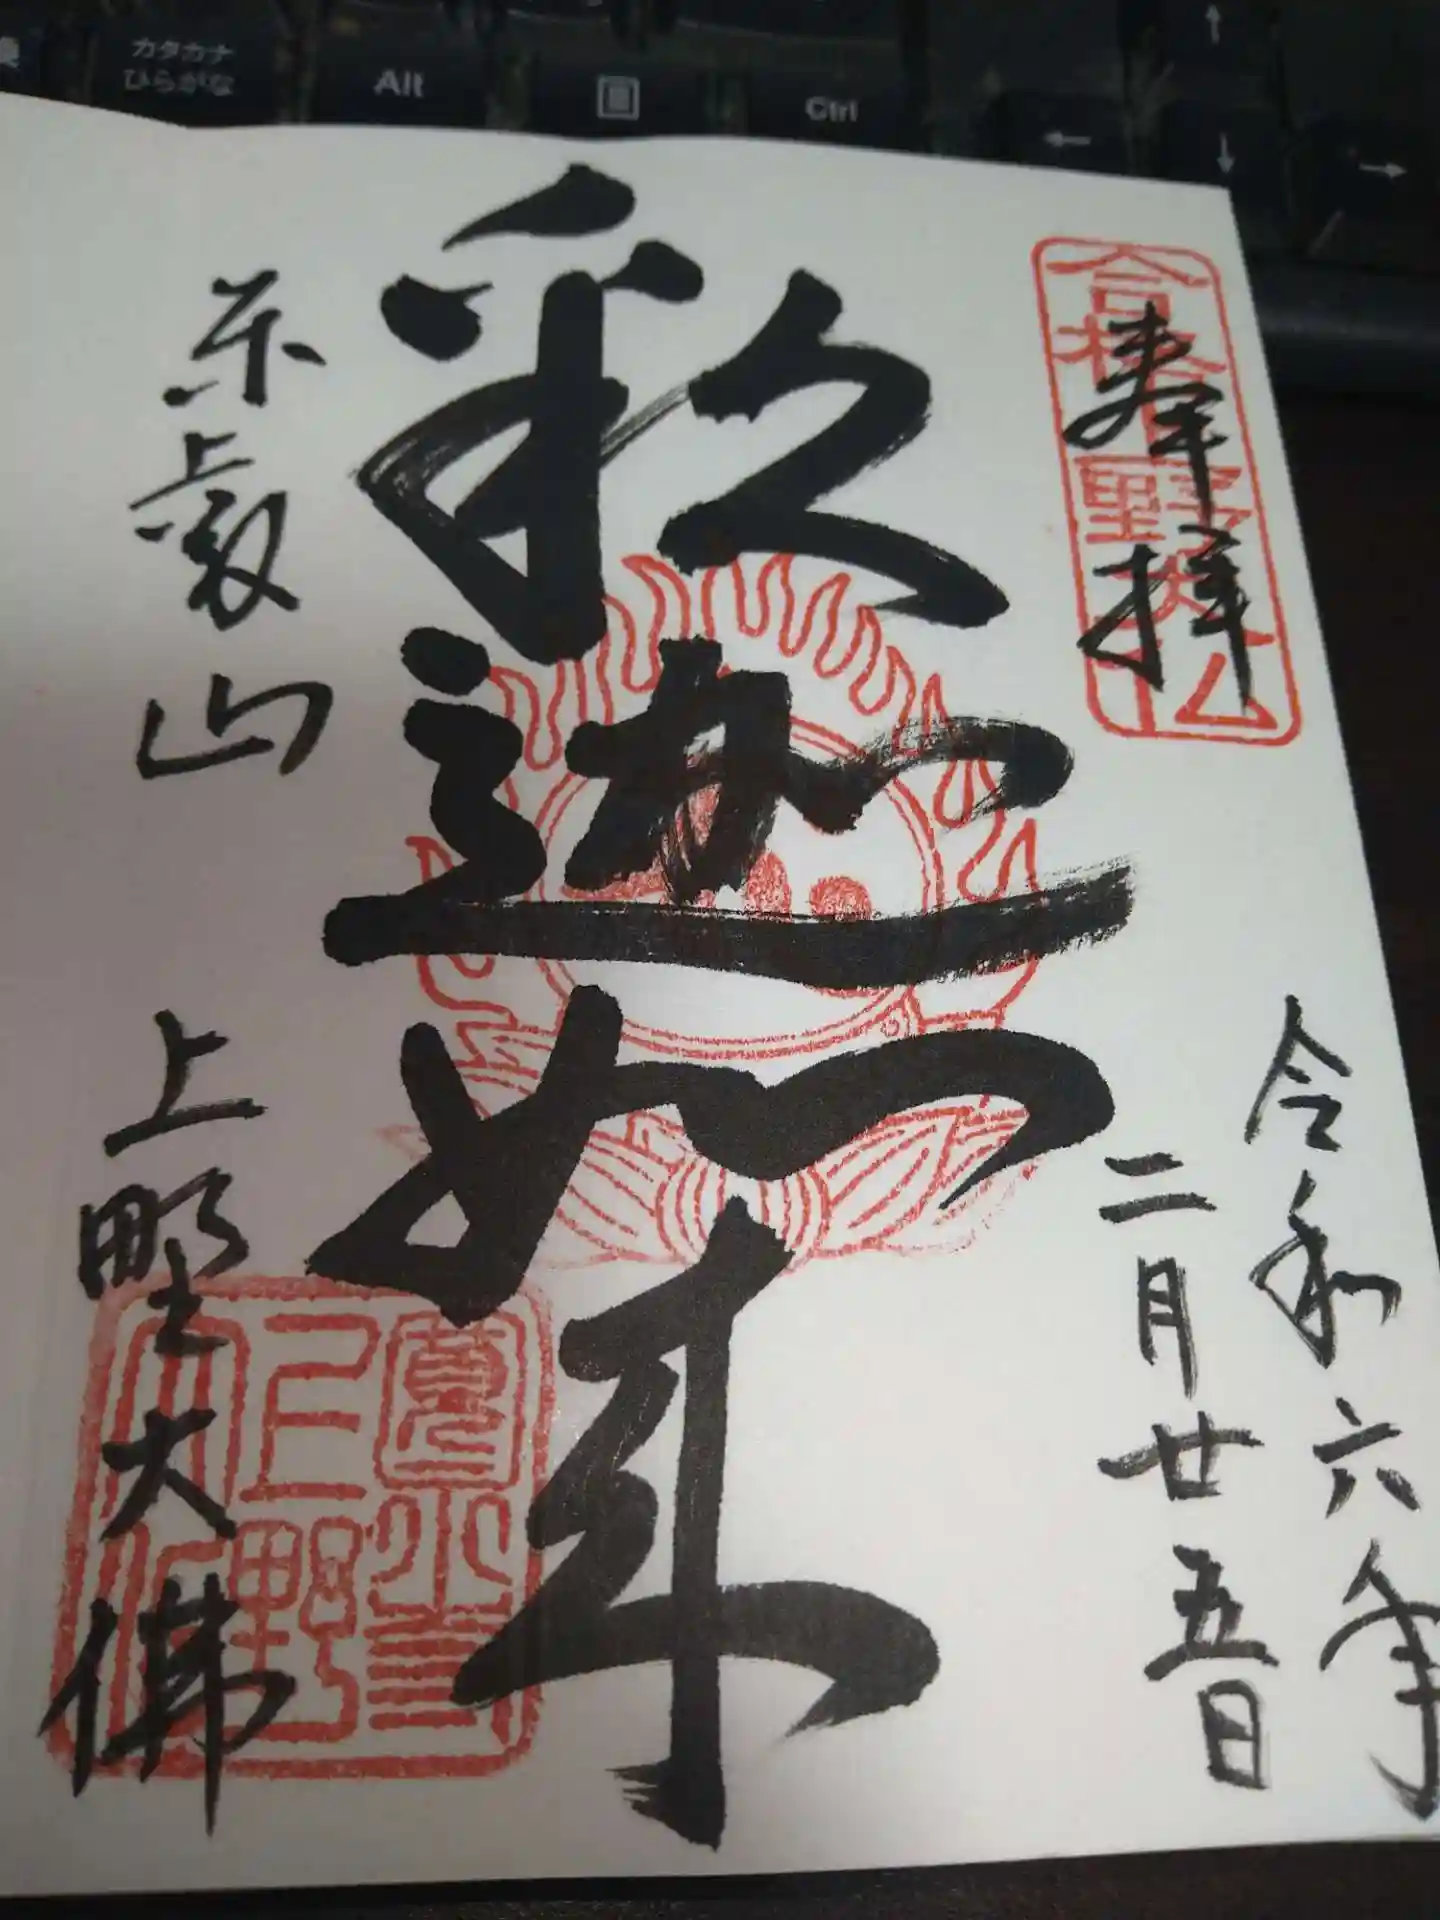 カタカナ
ひらがな
Alt
Ctrl
←
↑
↓
→
合格
上野大仏
奉拝
令和六年
二月廿五日
釈迦如来
東叡山
上野大佛